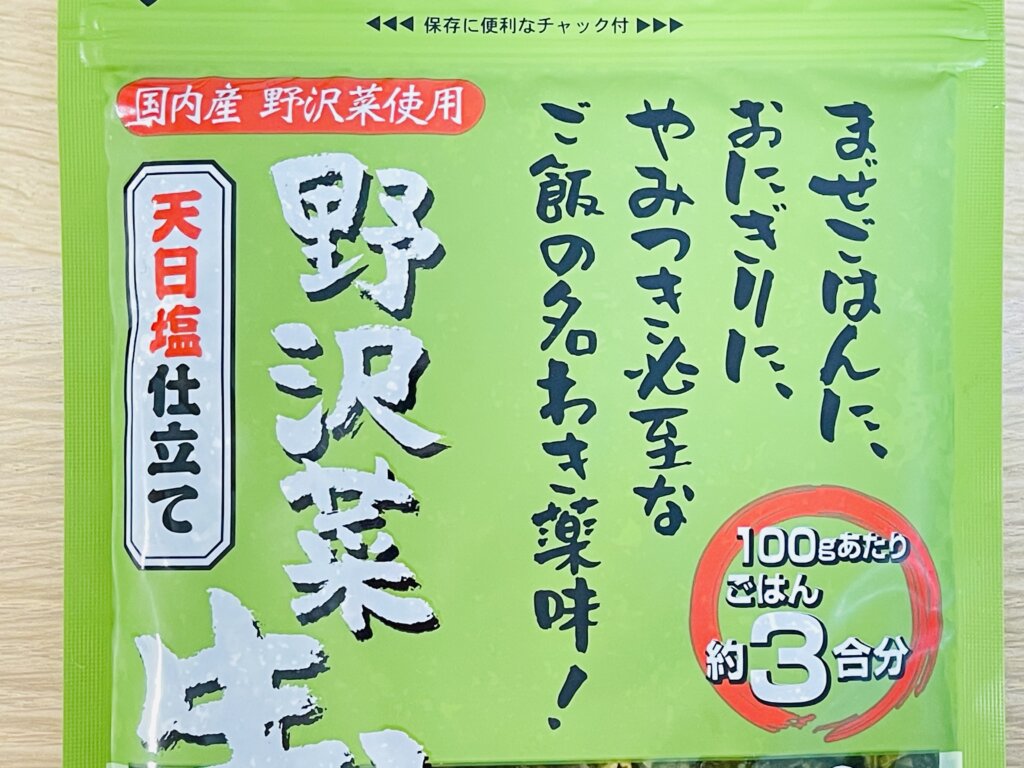 保存に便利なチャック付
国内産 野沢菜使用
まぜごはんに、
おにぎりに、
やみつき必至な
ご飯の名わき薬味!
野沢菜
天日塩仕立て
100gあたり
ごはん
約3合分